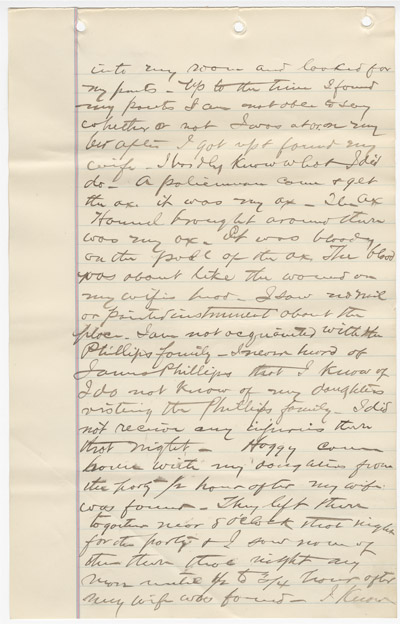 into my room and looked for
my pants - Up to the time I found
my pants I am not able to say
whether or not I was at or on my
bed after I got up & found my
wife - I hardly know what I did
do - A policeman come & get
the ax it was my ax - The ax
Hannel brought around there
was my ax - It was bloody
on the pole of the ax The blood
was about like the wound on
my wife's head - I saw no
or pointed instrument about the
place - I am not acquainted with the
Phillips family - I never heard of
James Phillips that I know of
I do not know of my daughters
visiting the Phillips family - I did
not receive any injuries then
that night - Hoggy come
home with my daughters from
the party ½ hour after my wife
was found - They left there
together near 8 o'clock that night
for the party & I saw none of
them there that night any
more until ½ to 3/4 hour after
my wife was found - I know